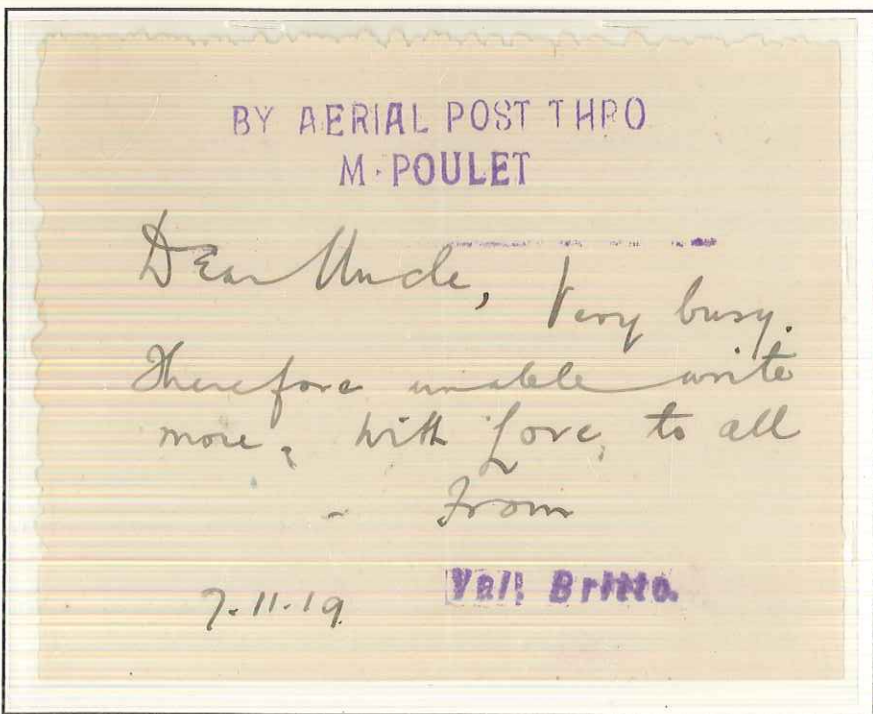 BY AERIAL POST THRO
M. POULET
Dear Uncle, Very busy.
Therefore unable write
more, with Love, to all
- From
7-11-19 Vall Britto.